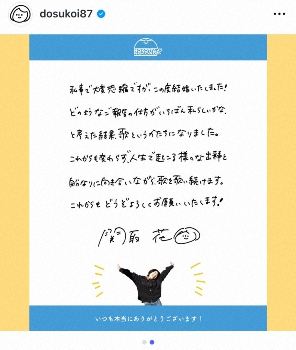 dosukoi87
私事で大変恐縮ですが、この度結婚いたしました!
どのようなご報告の仕方がいちばん私らしいかな、
と考えた結果、歌というかたちになりました。
これからも変わらず、人生で起こる様々な出来事と
自分なりに向き合いながら、歌を歌い続けます。
これからも どうぞよろしくお願いいたします!
関取 花
いつも本当にありがとうございます!